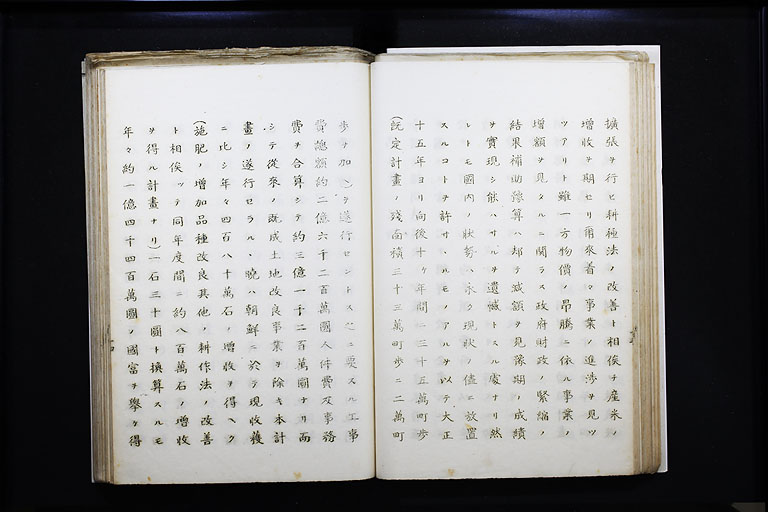 擴張ヲ行ヒ耕種法ノ改善ト相俟チ産米ノ
増收ヲ期セリ爾來着々事業ノ進渉ヲ見ツ
ツアリト雖一方物價ノ昂騰ニ依ル事業ノ
増額ヲ見タルニ関ラス政府財政ノ緊縮ノ
結果補助豫算ハ却テ減額ヲ見豫期ノ成績
ヲ實現シ能ハサルヲ遺憾トスル處ナリ然
レトモ國内ノ狀勢ハ永ク現狀ノ儘ニ放置
スルコトヲ許サヽルモノアルヲ以テ大正
十五年ヨリ向後十ケ年間ニ三十五萬町歩
(既定計畫ノ殘面積三十三萬町歩ニ二萬町
歩ヲ加フ)ヲ遂行セントス之ニ要スル工事
費總額約二億六千二百萬圓人件費及事務
費ヲ合算シテ約三億一千二百萬圓ナリ而
シテ從來ノ既成土地改良事業ヲ除キ本計
畫ノ遂行セラルヽ曉ハ朝鮮ニ於テ現收穫
ニ比シ年々四百八十萬石ノ増收ヲ得ヘク
(施肥ノ増加品種改良其他ノ耕作法ノ改善
ト相俟ッテ同年度間ニ約八百萬石ノ増收
ヲ得ル計畫ナリ)一石三十圓ト換算スルモ
年々約一億四千四百萬圓ノ國富ヲ擧ケ得